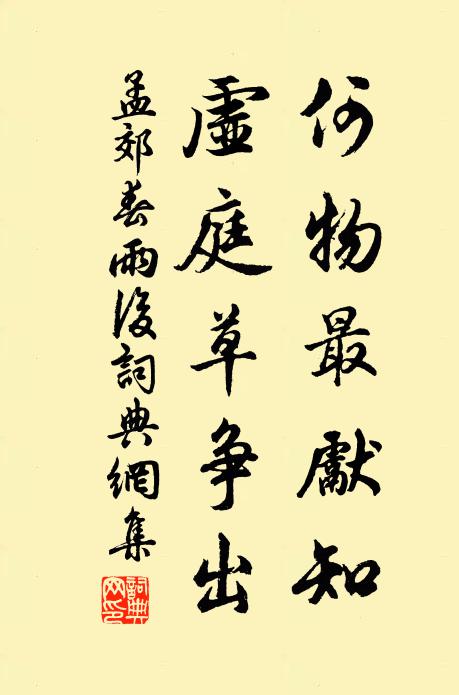 何物最獻知
虛庭草争出
孟郊春雨後詞典網集
詞典
网印